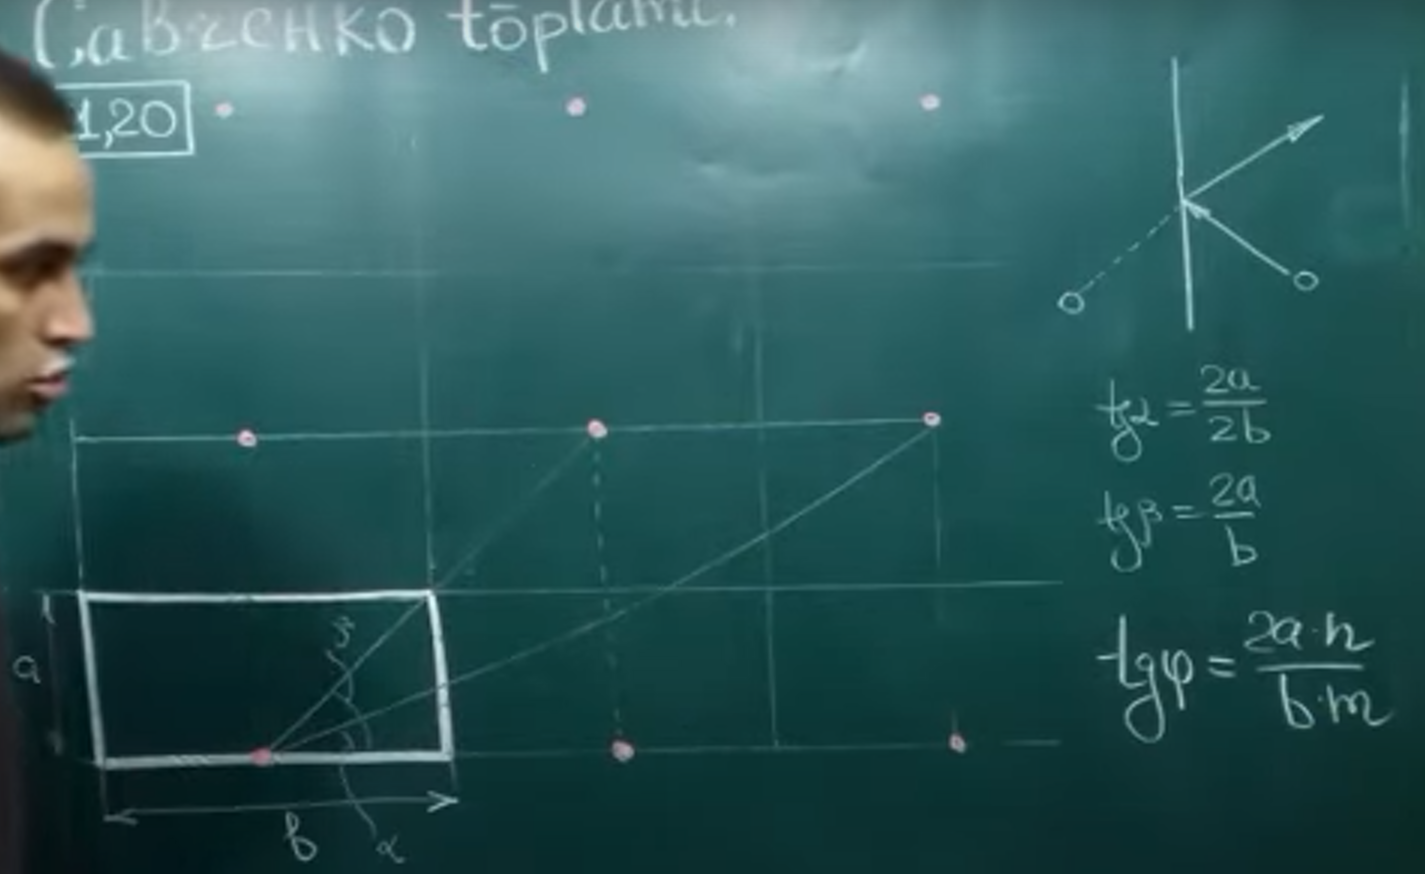 Савченко tōplami.
1,20
tgα = 2a/2b
tgβ = 2a/b
tgφ = 2a·n/b·m
β
a
b
α